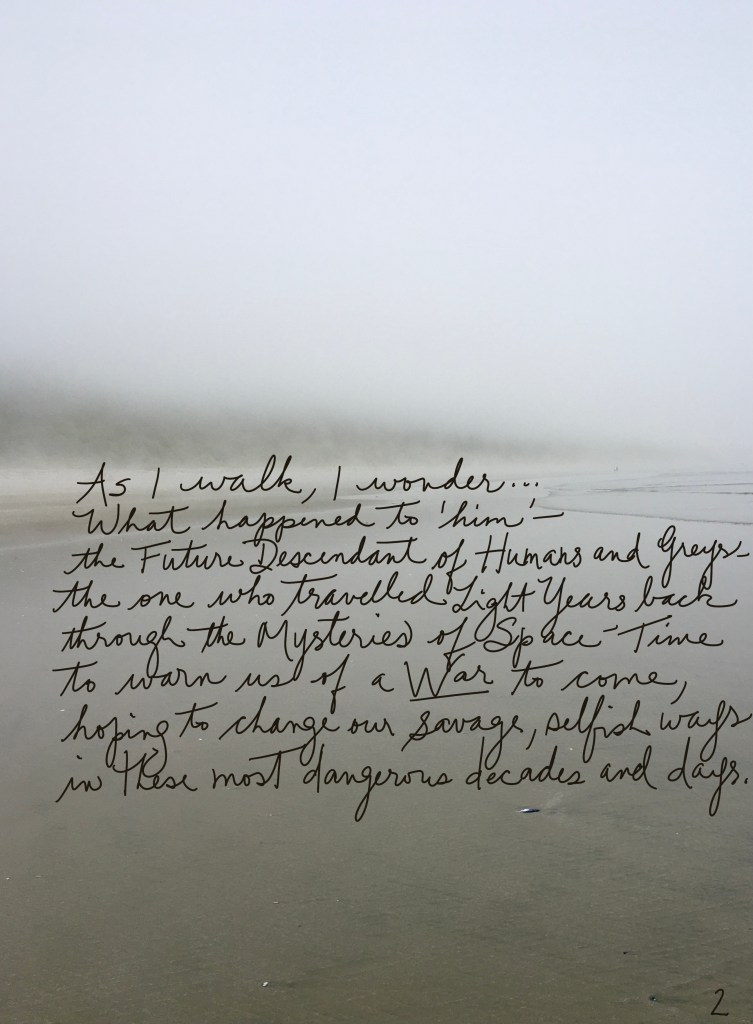 As I walk, I wonder...
What happened to 'him' –
the Future Descendant of Humans and Greys –
the one who travelled Light Years back
through the Mysteries of Space-Time
to warn us of a War to come,
hoping to change our savage, selfish ways
in these most dangerous decades and days.
2